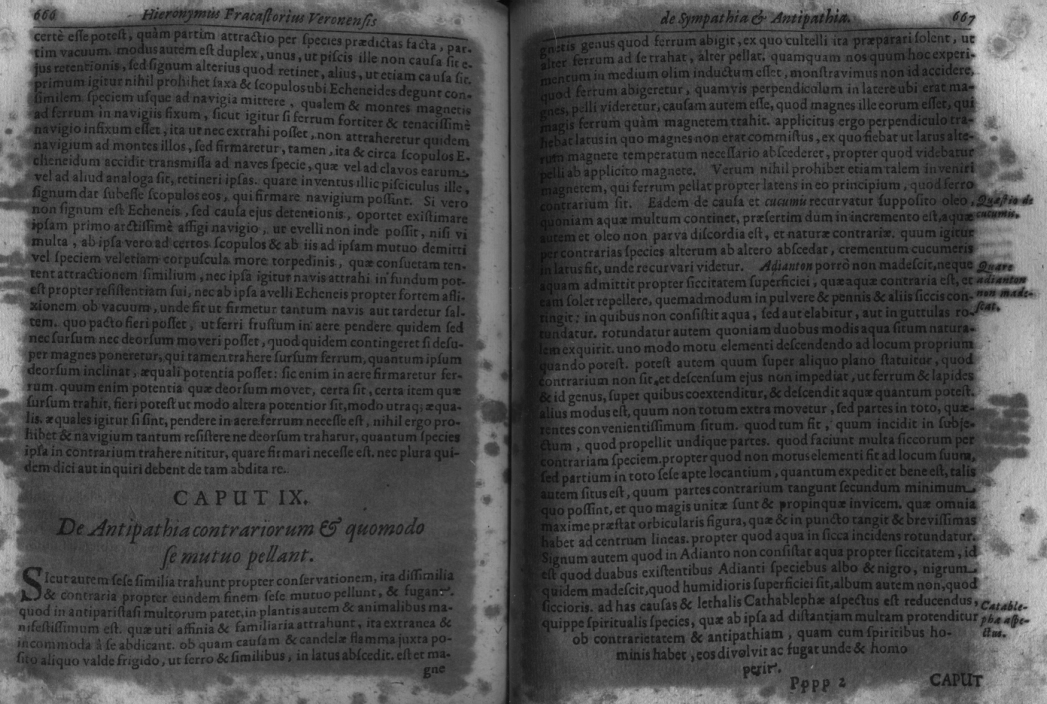 666 Hieronymus Fracastorius Veronensis
certè esse potest, quàm partim attractio per species prædictas facta, par-
tim vacuum. modus autem est duplex, unus, ut piscis ille non causa sit e-
jus retentionis, sed signum alterius quod retinet, alius, ut etiam causa sit.
primum igitur nihil prohibet saxa & scopulos ubi Echeneides degunt con-
similem speciem usque ad navigia mittere, qualem & montes magnetis
ad ferrum in navigiis fixum, sicut igitur si ferrum fortiter & tenacissimè
navigio infixum esset, ita ut nec extrahi posset, non attraheretur quidem
navigium ad montes illos, sed firmaretur, tamen, ita & circa scopulos E-
cheneidum accidit transmissa ad naves specie, quæ vel ad clavos earum
vel ad aliud analoga sit, retineri ipsas. quare inventus illic pisciculus ille,
signum dat subesse scopulos eos, qui firmare navigium possint. Si vero
non signum est Echeneis, sed causa ejus detentionis, oportet existimare
ipsam primo arctissimè affigi navigio, ut evelli non inde possit, nisi vi
multa, ab ipsa vero ad certos scopulos & ab iis ad ipsam mutuo demitti
vel speciem vel etiam corpuscula more torpedinis, quæ consuetam ten-
tent attractionem similium, nec ipsa igitur navis attrahi in fundum pot-
est propter resistentiam sui, nec ab ipsa avelli Echeneis propter fortem affi-
xionem ob vacuum, unde fit ut firmetur tantum navis aut tardetur sal-
tem. quo pacto fieri posset, ut ferri frustum in aere pendere quidem sed
nec sursum nec deorsum moveri posset, quod quidem contingeret si desu-
per magnes poneretur, qui tamen trahere sursum ferrum, quantum ipsum
deorsum inclinat, æquali potentia posset: sic enim in aere firmaretur fer-
rum. quum enim potentia quæ deorsum movet, certa sit, certa item quæ
sursum trahit, fieri potest ut modo altera potentior sit, modo utraq; æqua-
lis. æquales igitur si sint, pendere in aere ferrum necesse est, nihil ergo pro-
hibet & navigium tantum resistere ne deorsum trahatur, quantum species
ipsa in contrarium trahere nititur, quare firmari necesse est. nec plura qui-
dem dici aut inquiri debent de tam abdita re.
CAPUT IX.
De Antipathia contrariorum & quomodo
se mutuo pellant.
Sicut autem sese similia trahunt propter conservationem, ita dissimilia
& contraria propter eundem finem sese mutuo pellunt, & fugant.
quod in antiparistasi multorum patet. in plantis autem & animalibus ma-
nifestissimum est. quæ uti affinia & familiaria attrahunt, ita extranea &
incommoda à se abdicant. ob quam causam & candelæ flamma juxta po-
sito aliquo valde frigido, ut ferro & similibus, in latus abscedit. est et ma-
gne
de Sympathia & Antipathia. 667
gnetis genus quod ferrum abigit, ex quo cultelli ita præparari solent, ut
alter ferrum ad se trahat, alter pellat. quamquam nos quum hoc experi-
mentum in medium olim inductum esset, monstravimus non id accidere,
quod ferrum abigeretur, quamvis perpendicolum in latere ubi erat ma-
gnes, pelli videretur, causam autem esse, quod magnes ille eorum esset, qui
magis ferrum quàm magnetem trahit. applicitus ergo perpendiculo tra-
hebat latus in quo magnes non erat commistus, ex quo fiebat ut latus alte-
rum magnete temperatum necessario abscederet, propter quod videbatur
pelli ab applicito magnete. Verum nihil prohibet etiam talem inveniri
magnetem, qui ferrum pellat propter latens in eo principium, quod ferro
contrarium sit. Eadem de causa et cucumis recurvatur supposito oleo,
quoniam aquæ multum continet, præsertim dum in incremento est, aquæ
autem et oleo non parva discordia est, et naturæ contrariæ. quum igitur
per contrarias species alterum ab altero abscedat, crementum cucumeris
in latus fit, unde recurvari videtur. Adianton porrò non madescit, neque
aquam admittit propter siccitatem superficiei, quæ aquæ contraria est, et
eam solet repellere, quemadmodum in pulvere & pennis & aliis siccis con-
tingit: in quibus non consistit aqua, sed aut elabitur, aut in guttulas ro-
tundatur. rotundatur autem quoniam duobus modis aqua situm natura-
lem exquirit. uno modo motu elementi descendendo ad locum proprium
quando potest. potest autem quum super aliquo plano statuitur, quod
contrarium non sit, et descensum ejus non impediat, ut ferrum & lapides
& id genus, super quibus coextenditur, & descendit aqua quantum potest.
alius modus est, quum non totum extra movetur, sed partes in toto, quæ-
rentes convenientissimum situm. quod tum fit, quum incidit in subje-
ctum, quod propellit undique partes. quod faciunt multa siccorum per
contrariam speciem. propter quod non motus elementi fit ad locum suum,
sed partium in toto sese apte locantium, quantum expedit et bene est, talis
autem situs est, quum partes contrarium tangunt secundum minimum
quo possint, et quo magis unitæ sunt & propinquæ invicem. quæ omnia
maxime præstat orbicularis figura, quæ & in puncto tangit & brevissimas
habet ad centrum lineas. propter quod aqua in sicca incidens rotundatur.
Signum autem quod in Adianto non consistat aqua propter siccitatem, id
est quod duabus existentibus Adianti speciebus albo & nigro, nigrum
quidem madescit, quod humidioris superficiei sit, album autem non, quod
siccioris. ad has causas & lethalis Cathablephæ aspectus est reducendus,
quippe spiritualis species, quæ ab ipsa ad distantiam multam protenditur
ob contrarietatem & antipathiam, quam cum spiritibus ho-
minis habet, eos divolvit ac fugat unde & homo
perit.
Quæstio de
cucumis.
Quare
adianton
non made-
scat.
Catable-
phæ aspe-
ctus.
Pppp 2 CAPUT